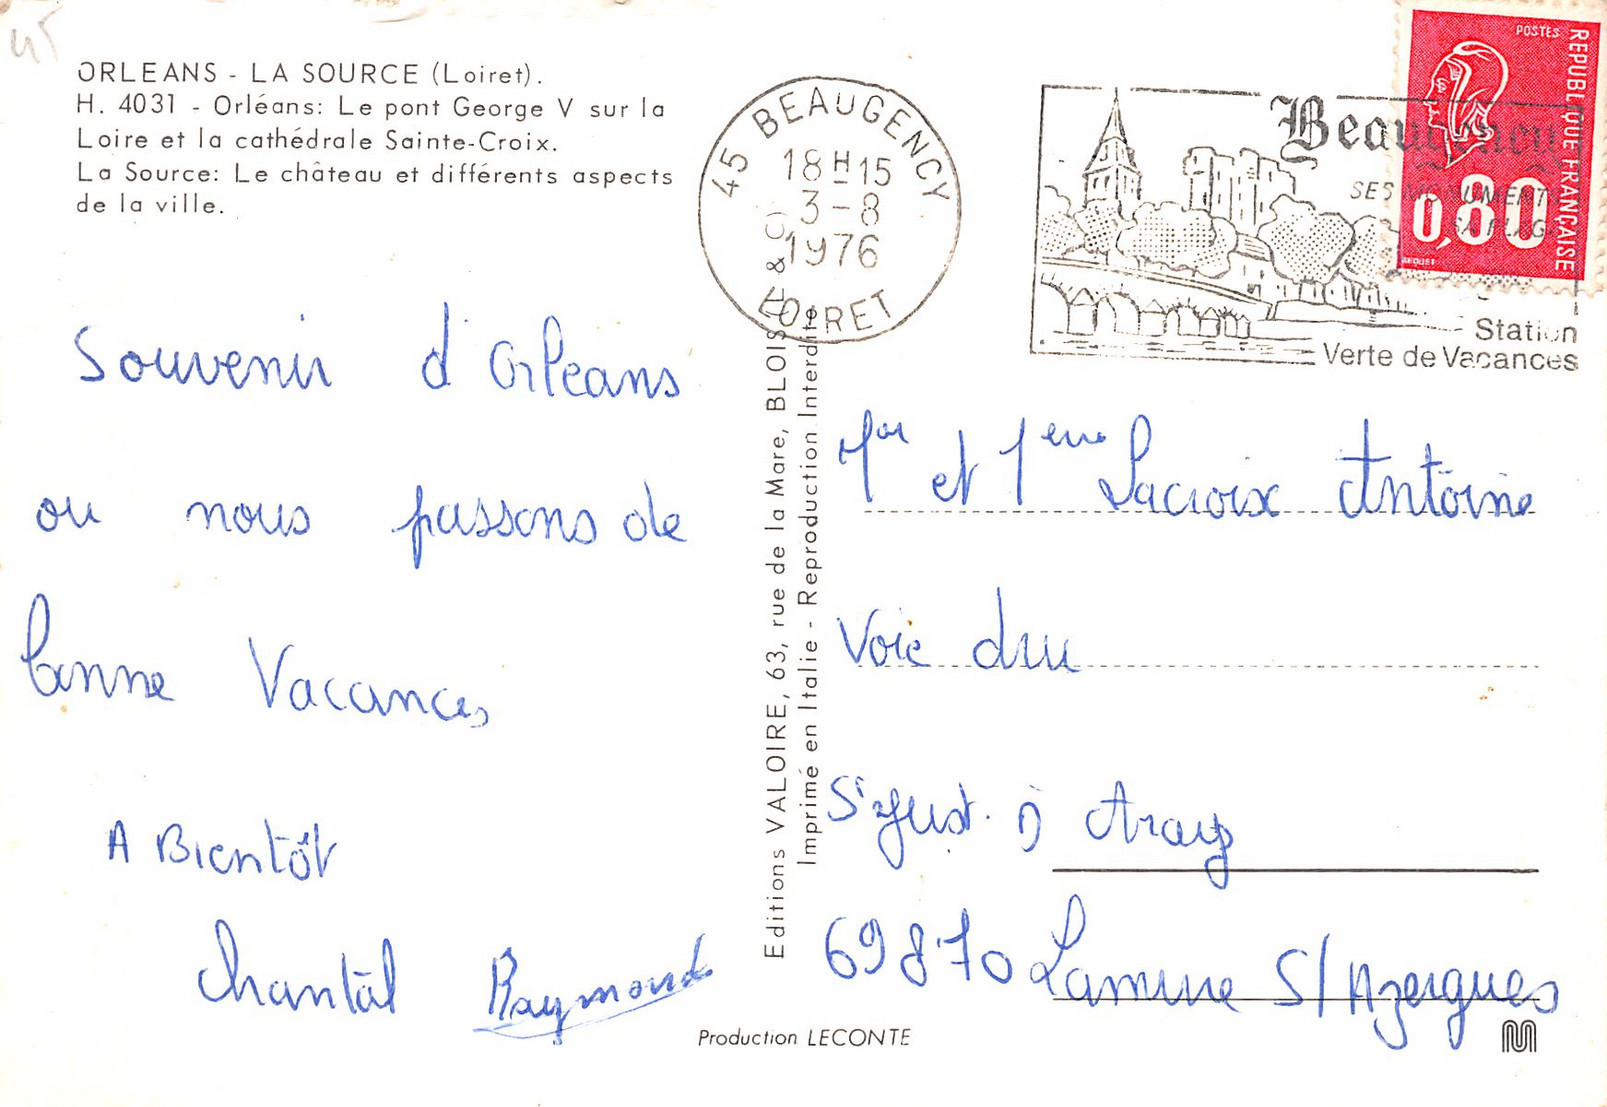 45
ORLEANS - LA SOURCE (Loiret).
H. 4031 - Orléans: Le pont George V sur la
Loire et la cathédrale Sainte-Croix.
La Source: Le château et différents aspects
de la ville.
45 BEAUGENCY
18H15
3-8
1976
LOIRET
Beaugency
SES MONUMENTS
SA PLAGE
Station
Verte de Vacances
POSTES
REPUBLIQUE FRANÇAISE
0,80
Souvenir d'Orleans
ou nous passons de
bonne Vacances
A Bientôt
Chantal Raymond
Editions VALOIRE, 63, rue de la Mare, BLOIS
Imprimé en Italie - Reproduction Interdite
Mor et Meme Lacroix Antoine
Voie du
St Just. D Avray
69870 Lamure S/Azergues
Production LECONTE